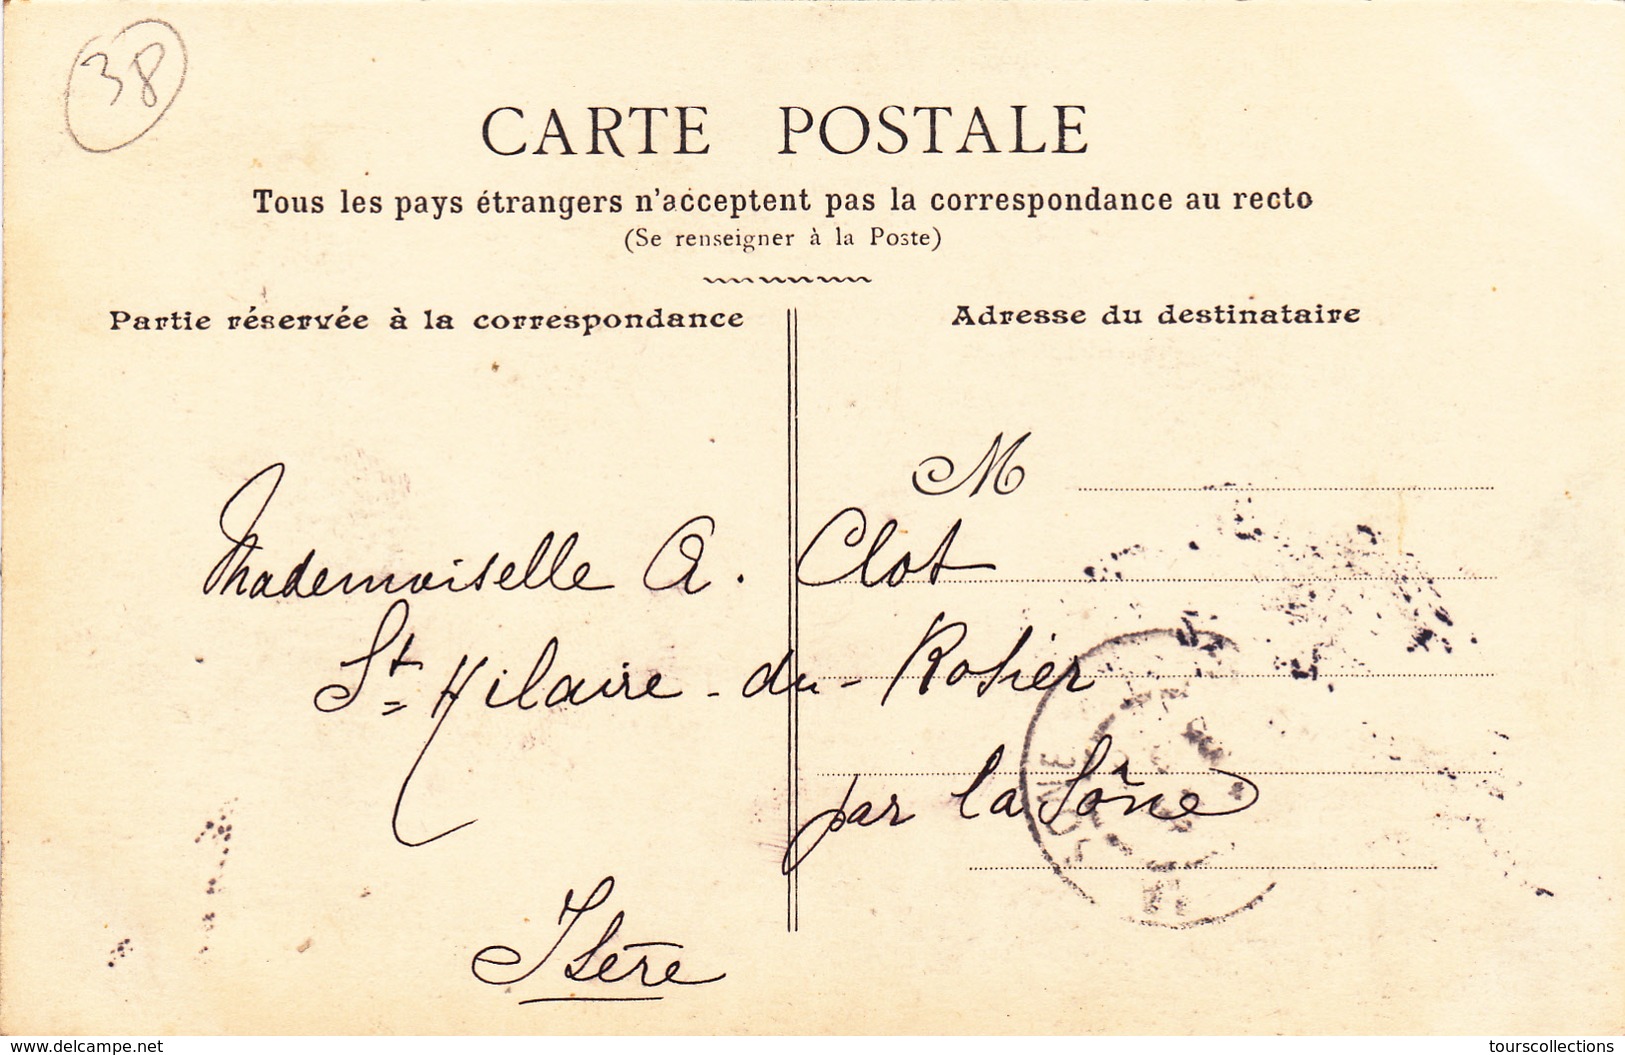 38
CARTE POSTALE
Tous les pays étrangers n'acceptent pas la correspondance au recto
(Se renseigner à la Poste)
Partie réservée à la correspondance
Adresse du destinataire
M
Mademoiselle A. Clot
St Hilaire-du-Rosier
par la Sône
Isère
www.delcampe.net
tourscollections